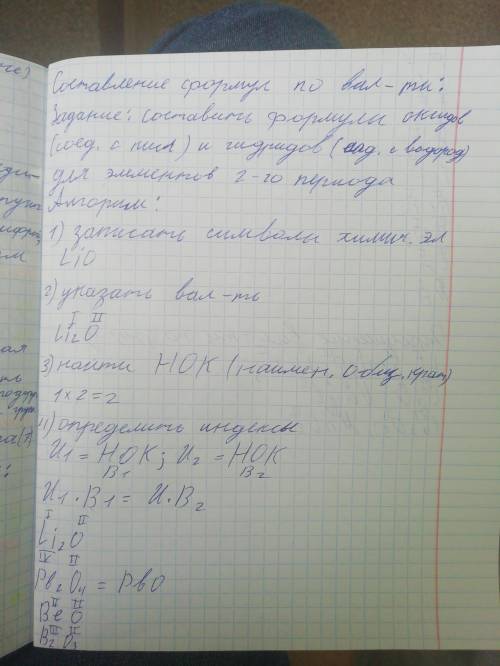 Составление формул по вал-ти:
Задание: составить формулы оксидов
(соед. с кисл) и гидридов (соед. с водород)
для элементов 2-го периода
Алгоритм:
1) записать символы химич. эл
LiO
2) указать вал-ть
I II
Li₂O
3) найти НОК (наимен. общ. крат)
1×2=2
4) определить индексы
И₁ = НОК/В₁; И₂ = НОК/В₂
И₁·В₁ = И·В₂
I II
Li₂O
IV II
Pb₂O₄ = PbO
II II
BeO
III II
B₂O₃